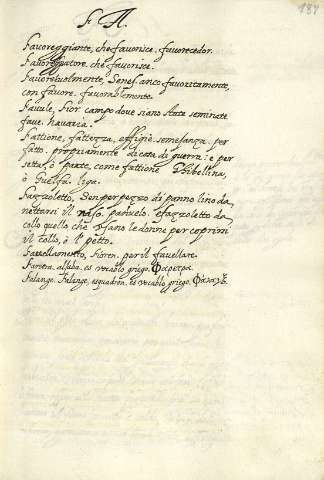 187
F A.
Favoreggiante, che favorisce, favorecedor.
Favoreggiatore. che favorisce.
Favoreuolmente, Senes. anco favoritamente,
con favore. favorablemente.
Favule, Fior. campo dove siano state seminate
fave. havaria.
Fattione, fattezza, effigie. semejança. per
fatto. propriamente di cota di guerra: e per
setta, ò parte, come fattione Ghibellina,
ò Guelfa. liga.
Fazzoletto, Sen. per pezzo di panno lino da
nettarsi il naso. pañuelo. e fazzoletto da
collo quello che usano le donne per coprirsi
il collo, è l' petto.
Favellamento, Fioren. per il favellare.
Faretra. aljaba. es vocablo griego. Φαρετρα.
Falange. Falange, esquadron. es vocablo griego.